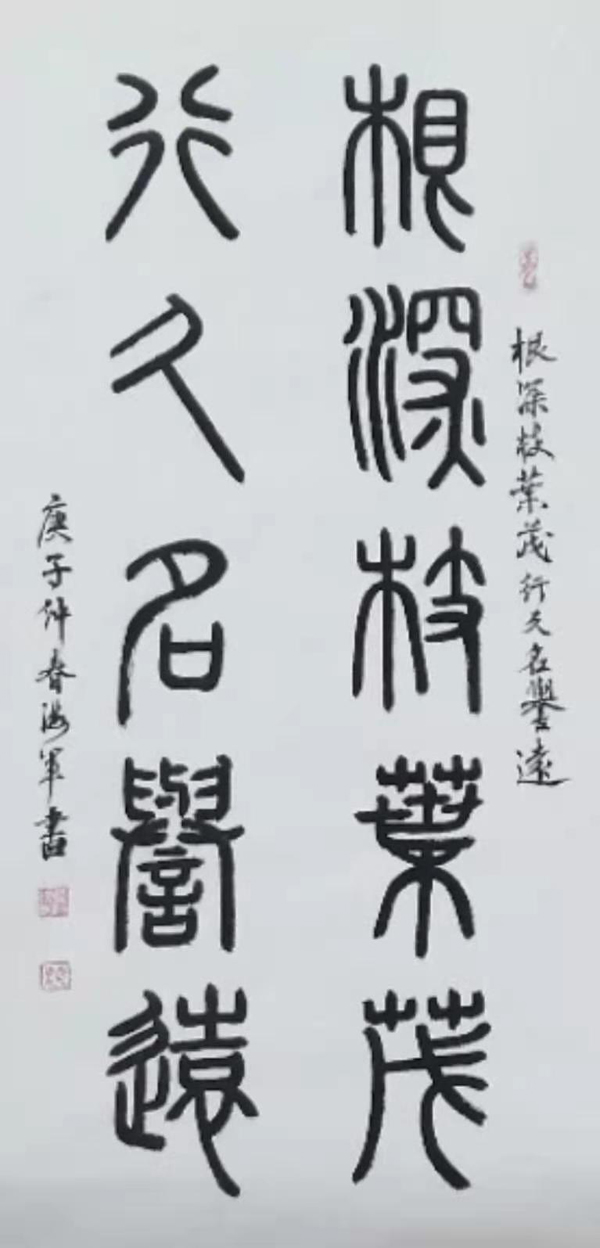 根深枝葉茂行久名譽遠
根深枝葉茂
行久名譽遠
庚子仲春海軍書